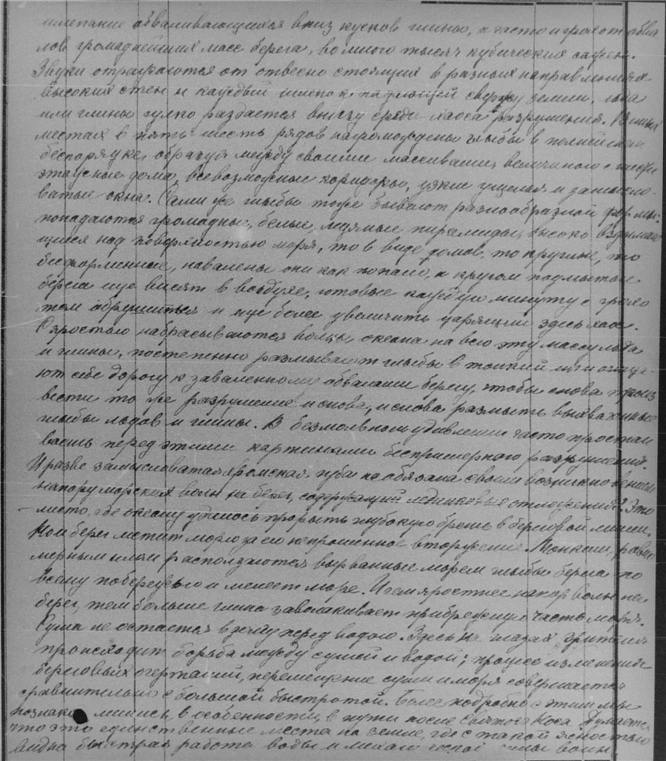 шлепание обваливающихся вниз кусков глины, а часто и грохот обва-
лов громаднейших масс берега, во много тысяч кубических сажен.
Звуки отражаются от отвесно стоящих в разных направлениях
высоких стен и каждый шлепок падающей сверху земли, льда
или глины гулко раздается внизу среди хаоса разрушения. В иных
местах в пять шесть рядов нагромождены глыбы в полнейшем
беспорядке, образуя между своими массивами, величиною с
этажные дома, всевозможные коридоры, узкие ущелья и
ватые окна. Сами же глыбы тоже бывают разнообразной формы:
попадаются громадные, белые, ледяные пирамиды, высоко вздымаю-
щиеся над поверхностью моря, то в виде домов, то круглые, то
бесформенные, навалены они как попало, а кругом подмытые
берега еще висят в воздухе, готовые каждую минуту с грохо-
том обрушиться и еще более увеличить царящий здесь хаос.
С яростью набрасываются волны океана на всю эту массу льда
и глины, постепенно размывают глыбы в тонкий ил и очища-
ют себе дорогу к заваленному обвалами берегу, чтобы снова произ-
вести то же разрушение и снова, и снова размыть
глыбы льдов и глины. В безмолвном удивлении часто простаи-
ваешь перед этими картинами беспримерного разрушения.
И разве замысловатая губа не обязана своим возникновением
напору морских волн на берег, содержащий ледниковые отложения? Это
место, где океану удалось прорыть глубокую брешь в береговой линии.
Но и берег мстит морю за его непрошенное вторжение. Тонким, равно-
мерным илом расползаются вырванные морем глыбы берега по
всему побережью и мелеет море. И чем яростнее напор волн на
берег, тем больше глина заволакивает прибрежную часть моря.
Суша не остается в долгу перед водою. Здесь на глазах зрителя
происходит борьба между сушей и водой; процесс изменения
береговых очертаний, перемещение суши и моря совершается
сравнительно с большой быстротой. Более подробно с этим мы
познакомились, в особенности, в пути после Святого Носа. Думается
что это единственные места на земле, где с такой ясностью
видна быстрая работа воды и силы волн